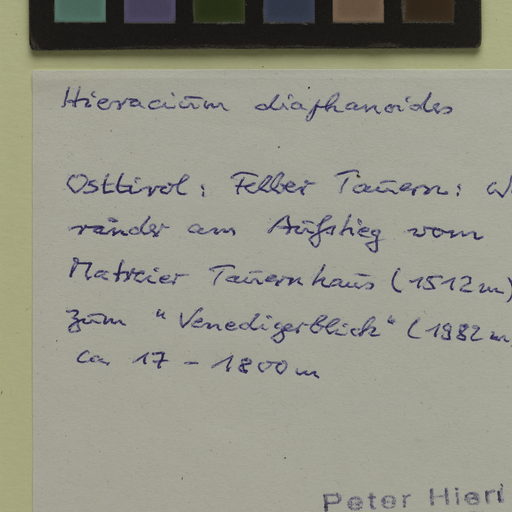 Hieracium diaphanoides
Osttirol: Felber Tauern: W
ränder am Aufstieg vom
Matreier Tauernhaus (1512m)
zum "Venedigerblick" (1982m
ca 17 - 1800m
Peter Hierl